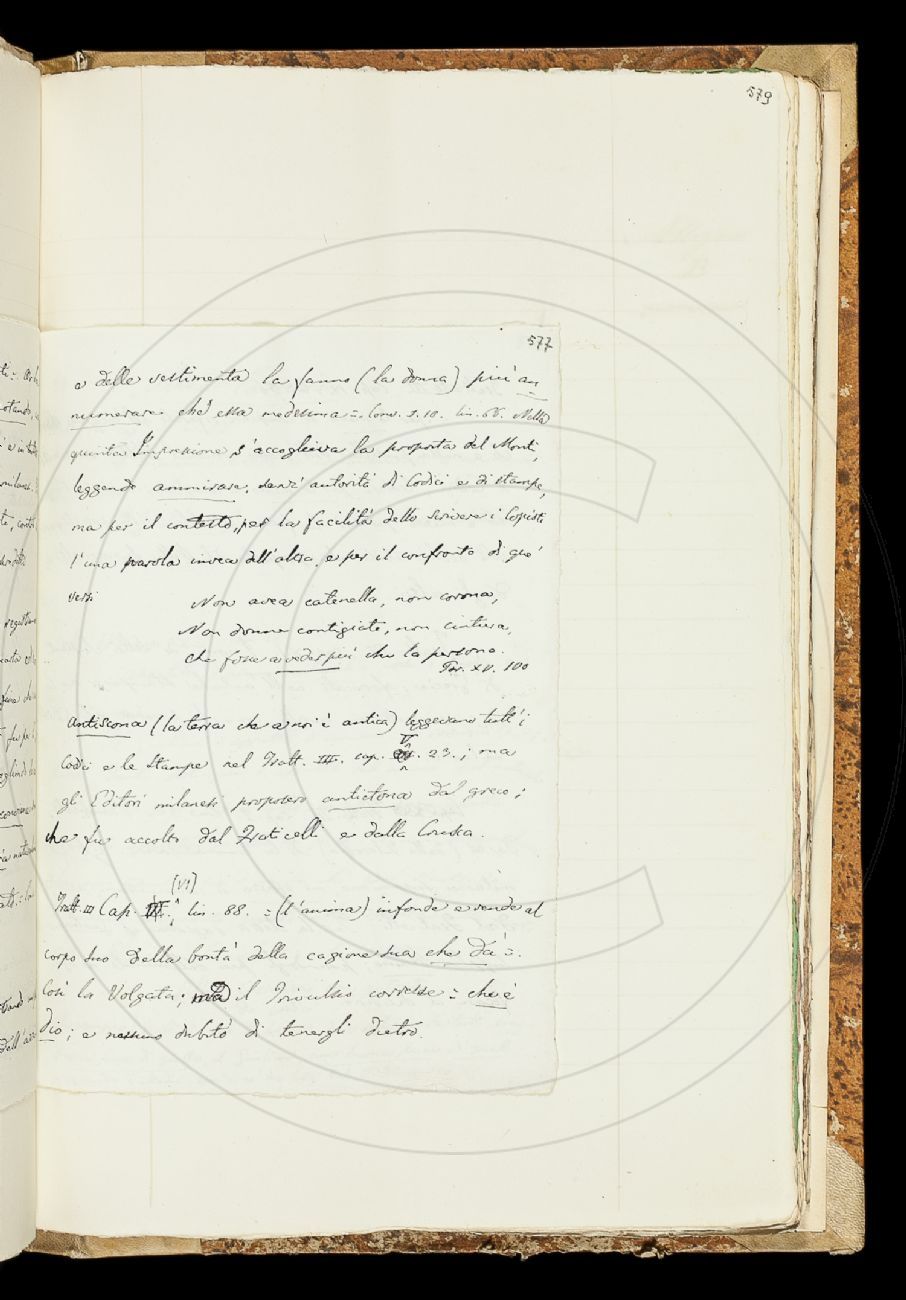 579
577
e delle vestimenta la fanno (la donna) più an
numerare che essa medesima =. Conv. 1. 10. lin. 68. Nella
quinta Impressione s'accoglieva la proposta del Monti,
leggendo ammirare, senz' autorità di Codici e di stampe,
ma per il contesto, per la facilità dello scrivere i Copisti
l'una parola invece dell'altra, e per il confronto di que'
versi
Non avea catenella, non corona,
Non donne contigiate, non cintura,
Che fosse a veder più che la persona.
Par. XV. 100
Antiscona (la terra che a noi è antica) leggevano tutt'i
Codici e le Stampe nel Tratt. III. cap. V. 23.; ma
gli Editori milanesi proposero antictona dal greco;
che fu accolto dal Fraticelli e dalla Crusca.
(VI)
Tratt. III Cap. lin. 88. = (l'anima) infonde e rende al
corpo suo della bontà della cagione sua che dà =.
Così la Volgata; ma il Trivulzio corresse = che è
Dio; e nessuno dubitò di tenergli dietro.